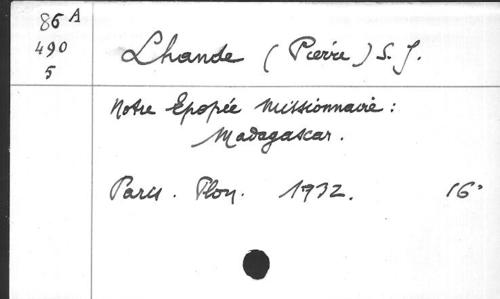 86 A
490
5
Lhande (Pierre) S. J.
Notre Epopée Missionnaire :
Madagascar.
Paris. Plon. 1932. 16°